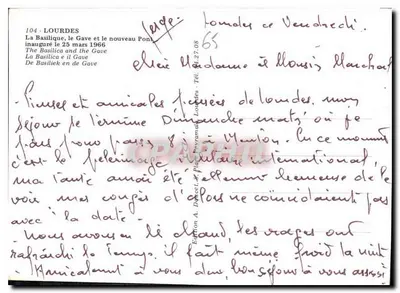 104 - LOURDES
La Basilique, le Gave et le nouveau Pont
inauguré le 25 mars 1966
The Basilica and the Gave
La Basilica e il Gave
De Basiliek en de Gave
Lourdes ce Vendredi
65
chère Madame et Monsieur Marchal
amicales pensées de Lourdes, mon
séjour se termine Dimanche matin où je
pars pour Paris Menton. En ce moment
c'est le pèlerinage militaire international,
ma tante aurait été tellement heureuse de le
voir mes congés d'alors ne coïncidaient pas
avec la date
Nous avons eu chaud, les orages ont
rafraîchi le temps, il fait même froid la nuit
Amicalement à vous deux, bon séjour à vous aussi